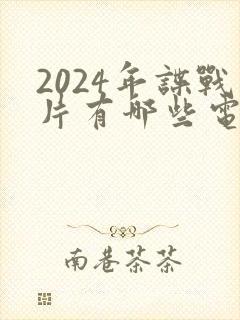 2024年諜戰
片有哪些電
南巷茶茶